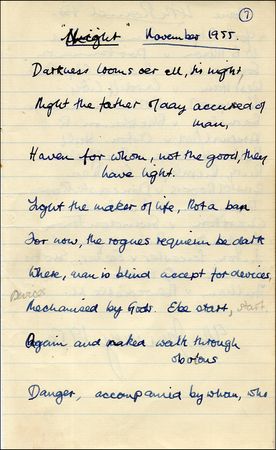 7
"Night" November 1955.
Darkness looms oer all, tis night,
Night the father of day accursed of
man,
Haven for whom, not the good, they
have light.
Light the maker of life, Not a ban
For now, the rogues requiem be dark
Where, man is blind accept for devices,
Devices
Mechanised by Gods. Else start, start
Again and naked walk through
obvious
Danger, accompanied by whom, who